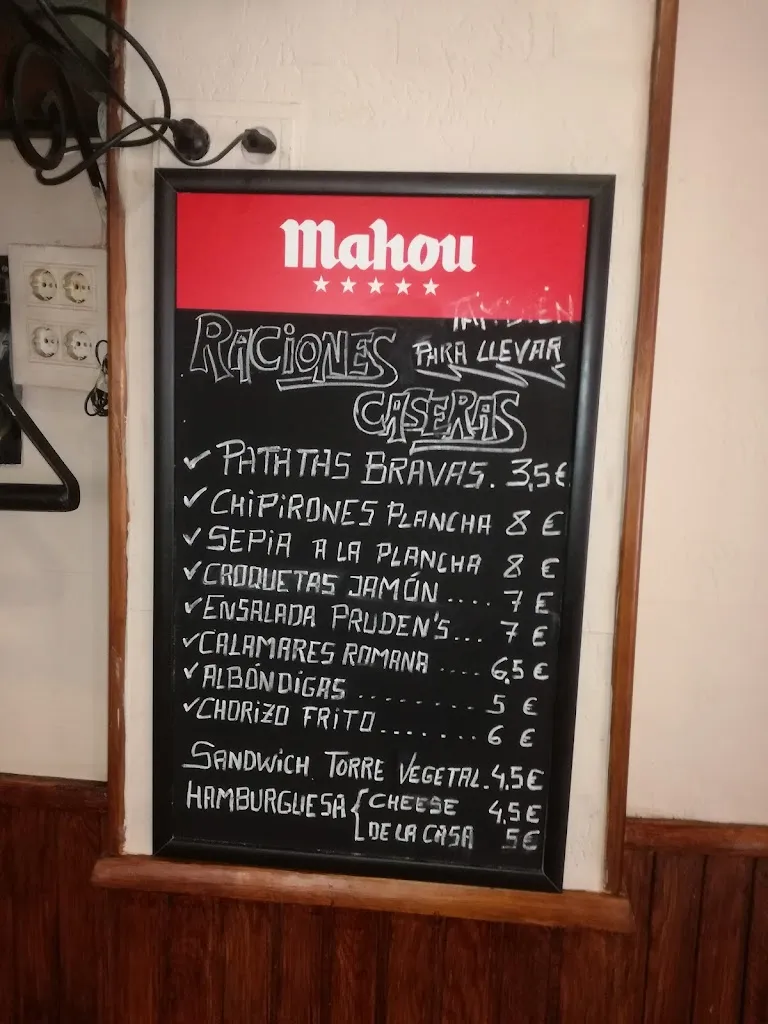 Mahou
TAMBIÉN
RACIONES PARA LLEVAR
CASERAS
✓ PATATAS BRAVAS. 3,5€
✓ CHIPIRONES PLANCHA 8 €
✓ SEPIA A LA PLANCHA 8 €
✓ CROQUETAS JAMÓN .... 7 €
✓ ENSALADA PRUDEN'S... 7 €
✓ CALAMARES ROMANA .... 6,5€
✓ ALBÓNDIGAS ......... 5 €
✓ CHORIZO FRITO....... 6 €
SANDWICH TORRE VEGETAL. 4,5€
HAMBURGUESA { CHEESE 4,5€
DE LA CASA 5€